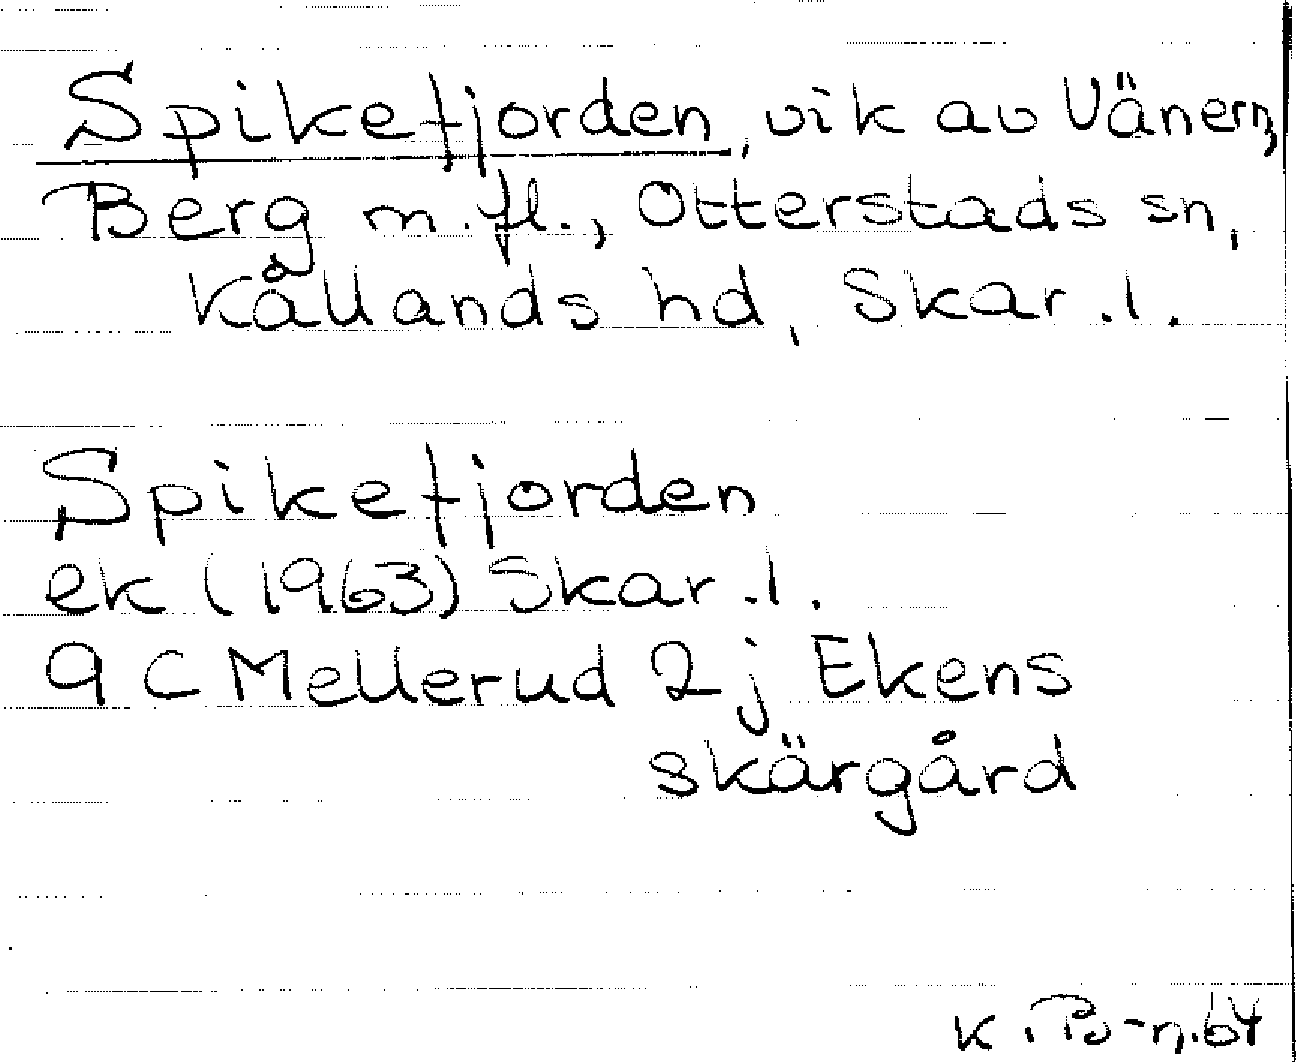 Spikefjorden, vik av Vänern,
Berg m.fl., Otterstads sn,
Kållands hd, Skar.l.
Spikefjorden
ek (1963) Skar.l.
9 C Mellerud 2 j Ekens
skärgård
K. Bo-n.64